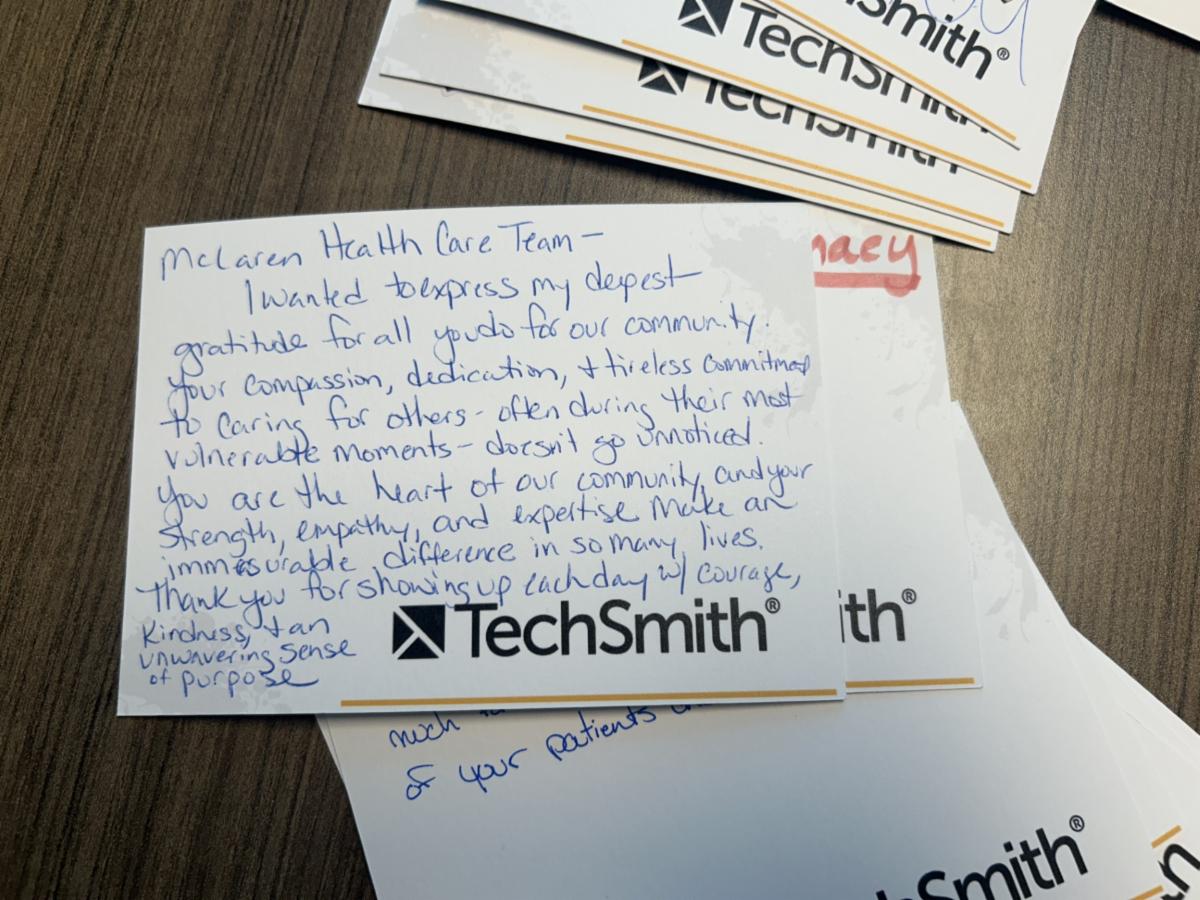 Smith®
TechSmith®
TechSmith
McLaren Health Care Team -
I wanted to express my deepest
gratitude for all you do for our community.
Your compassion, dedication, + tireless commitment
to caring for others - often during their most
vulnerable moments - doesn't go unnoticed.
You are the heart of our community, and your
strength, empathy, and expertise make an
immesurable difference in so many lives.
Thank you for showing up each day w/ courage,
kindness, + an
unwavering sense
of purpose
TechSmith®
macy
ith®
much
of your patients
Smith®